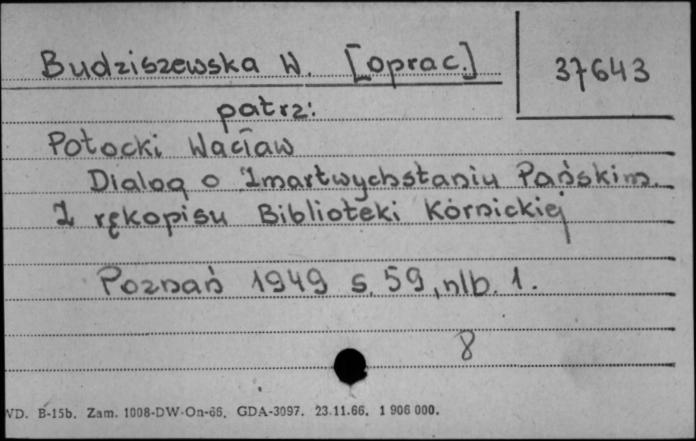 Budziszewska W. [oprac.]
37643
patrz:
Potocki Wacław
Dialog o Zmartwychstaniu Pańskim.
Z rękopisu Biblioteki Kórnickiej
Poznań 1949 s. 59, nlb. 1.
8
WD. B-15b. Zam. 1008-DW-On-66. GDA-3097. 23.11.66. 1 906 000.